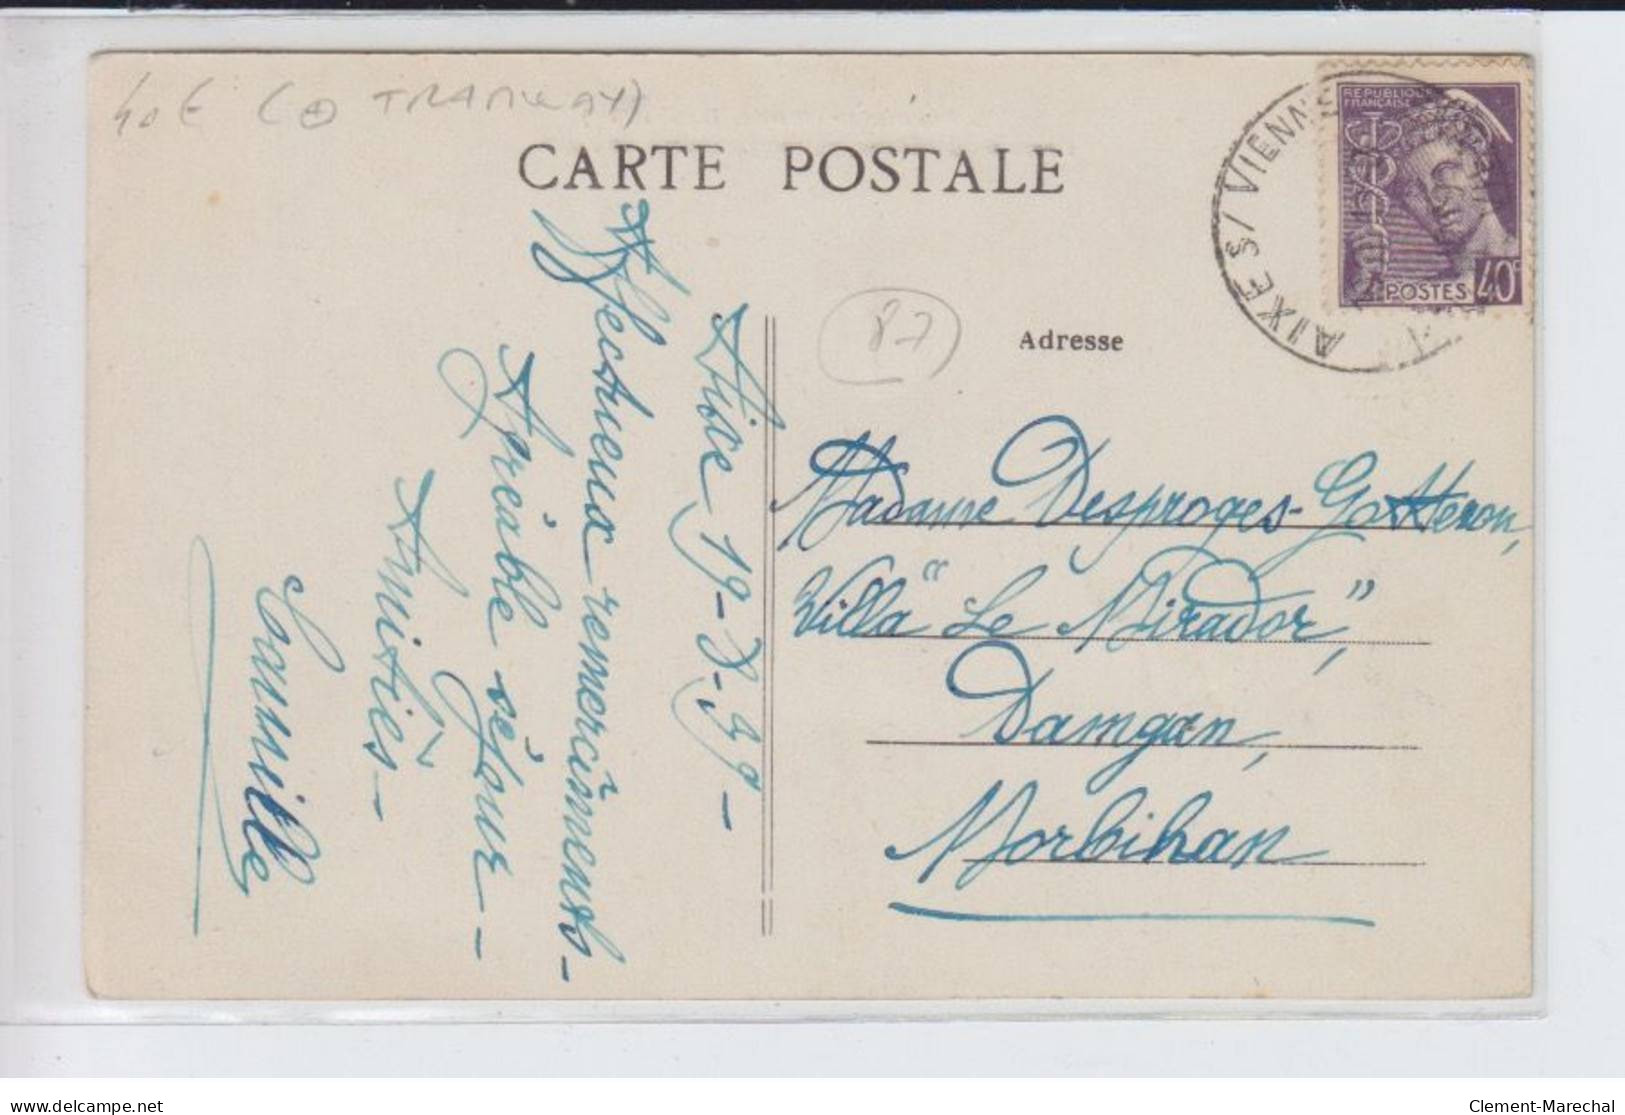 40 € (⊕ TRAMWAY)
CARTE POSTALE
AIXE S/ VIENNE
REPUBLIQUE
FRANÇAISE
POSTES 40c
87
Adresse
Aixe 19-8-39-
Affectueux remerciements-
Agréable séjour-
Amitiés-
Madame Desproges-Gotteron,
Villa "Le Mirador",
Damgan,
Morbihan
www.delcampe.net
Clement-Marechal